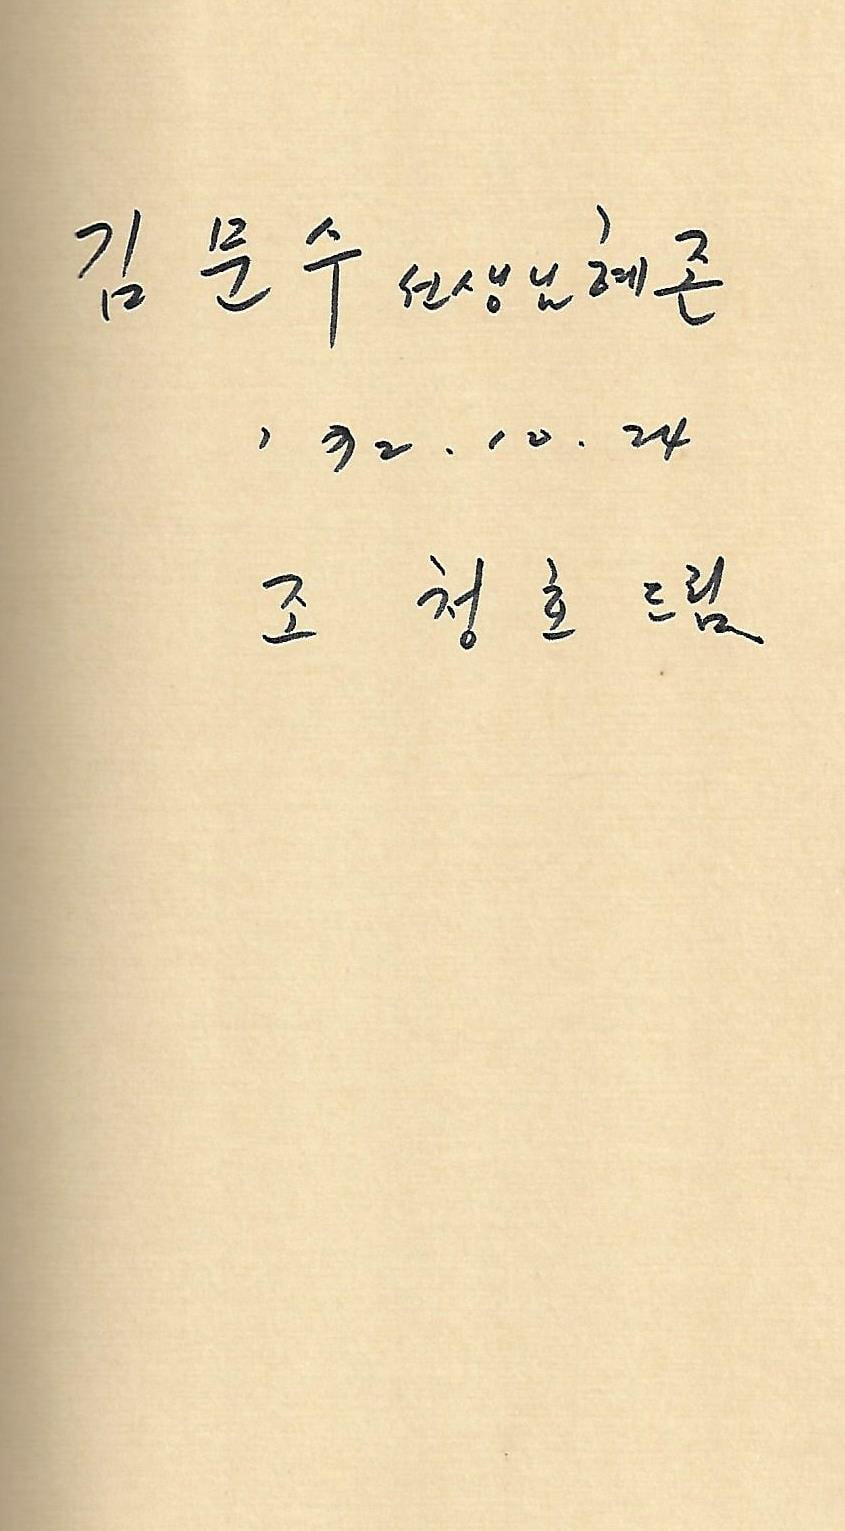 김 문 수 선생님 혜존
'92. 10. 24
조 청 호 드림